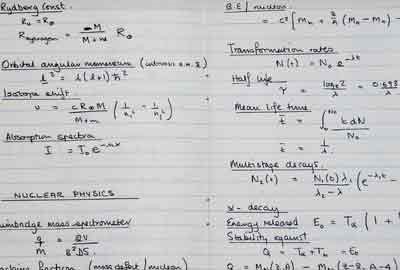 Rydberg Const.
R₀ = R∞
R hydrogen = M / M+m R∞
Orbital angular momentum
l² = l(l+1)ħ²
Isotope shift.
ν = cR∞M / M+m (1/n₁² - 1/n₂²)
Absorption spectra
I = I₀e
NUCLEAR PHYSICS
mass spectrometer
q/m = 2V / B²DS
fraction (mass defect / nucleon)
B.E / nucleon
Transformation rates
N(t) = N₀e^-λt
Half life
τ = logₑ2 / λ = 0.693
Mean life time
t̄ = ∫ t dN / N₀
t̄ = 1/λ
Multistage decays.
N₂(t) = N₁(0)λ₁ / λ₂-λ₁ (e^-λ₁t -
α- decay
Energy released E₀ = Tα (1 +
Stability against
Q = Tα + Tb = E₀